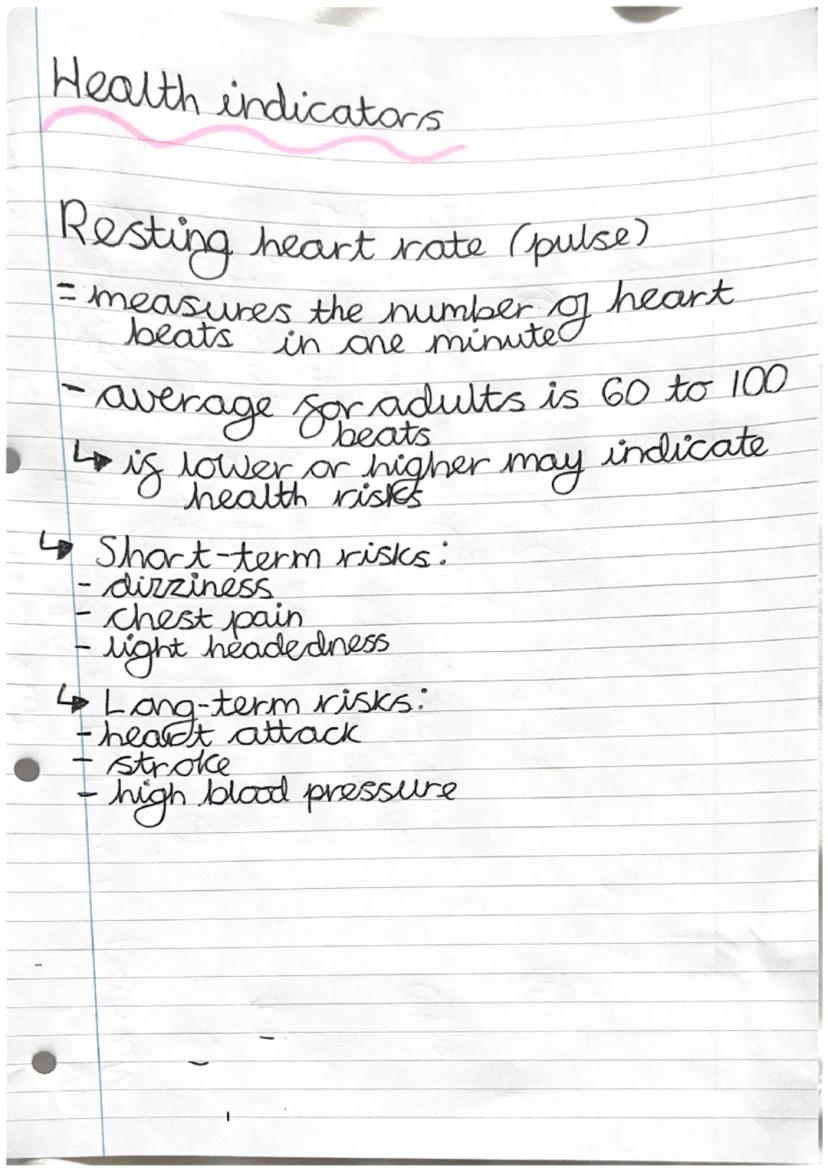 Health indicators
Resting heart rate (pulse)
= measures the number of heart
beats in one minute
- average for adults is 60 to 100
beats
↳ if lower or higher may indicate
health risks
↳ Short-term risks:
- dizziness
- chest pain
- light headedness
↳ Long-term risks:
- heart attack
- stroke
- high blood pressure